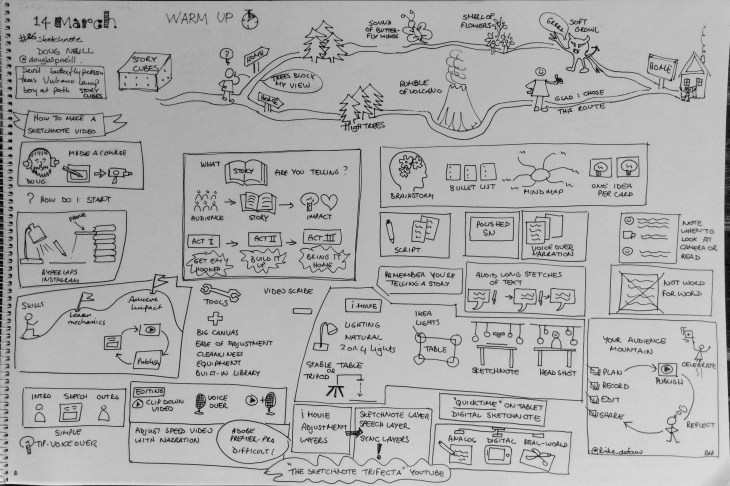 14 March
WARM UP
#26 Sketchnote
DOUG NEILL
@douglaspneill
STORY CUBES
Devil butterfly person
trees Vulcano Lamp
boy at path STORY
CUBES
?
HOME
HOME
TREES BLOCK
MY VIEW
SOUND
OF BUTTER-
FLY WINGS
SMELL OF
FLOWERS
GRRR!
SOFT
GROWL
HIGH TREES
RUMBLE
OF VOLCANO
GLAD I CHOSE
THIS ROUTE
HOME
HOW TO MAKE A
SKETCHNOTE VIDEO
MADE A COURSE
DOUG
? HOW DO I START
PHONE
HYPERLAPS
INSTAGRAM
WHAT STORY ARE YOU TELLING?
AUDIENCE
STORY
IMPACT
ACT I
ACT II
ACT III
GET EM
HOOKED
BUILD IT
UP
BRING IT
HOME
BRAINSTORM
BULLET LIST
MINDMAP
ONE IDEA
PER CARD
SCRIPT
POLISHED
SN
VOICE OVER
NARRATION
NOTE
WHEN TO
LOOK AT
CAMERA OR
READ
REMEMBER YOU'RE
TELLING A STORY
AVOID LONG STETCHES
OF TEXT
NOT WORD
FOR WORD
Skills
Learn
mechanics
Achieve
impact
Publish
TOOLS
VIDEOSCRIBE
BIG CANVAS
EASE OF ADJUSTMENT
CLEANLINESS
EQUIPMENT
BUILT-IN LIBRARY
i MOVIE
LIGHTING
NATURAL
2 OR 4 LIGHTS
STABLE TABLE
OR
TRIPOD
IKEA
LIGHTS
TABLE
SKETCHNOTE
HEADSHOT
YOUR AUDIENCE
MOUNTAIN
PLAN
RECORD
EDIT
SHARE
PUBLISH
CELEBRATE
REFLECT
INTRO SKETCH OUTRO
SIMPLE
TIP-VOICE OVER
EDITING
CLIP DOWN
VIDEO
VOICE
OVER
ADJUST SPEED VIDEO
WITH NARRATION
ADOBE
PREMIER-PRO
DIFFICULT!
i MOVIE
ADJUSTMENT
LAYERS
SKETCHNOTE LAYER
SPEECH LAYER
SYNC LAYERS
"QUICKTIME" ON TABLET
DIGITAL SKETCHNOTE
ANALOG
DIGITAL
REAL-WORLD
"THE SKETCHNOTE TRIFECTA" YOUTUBE